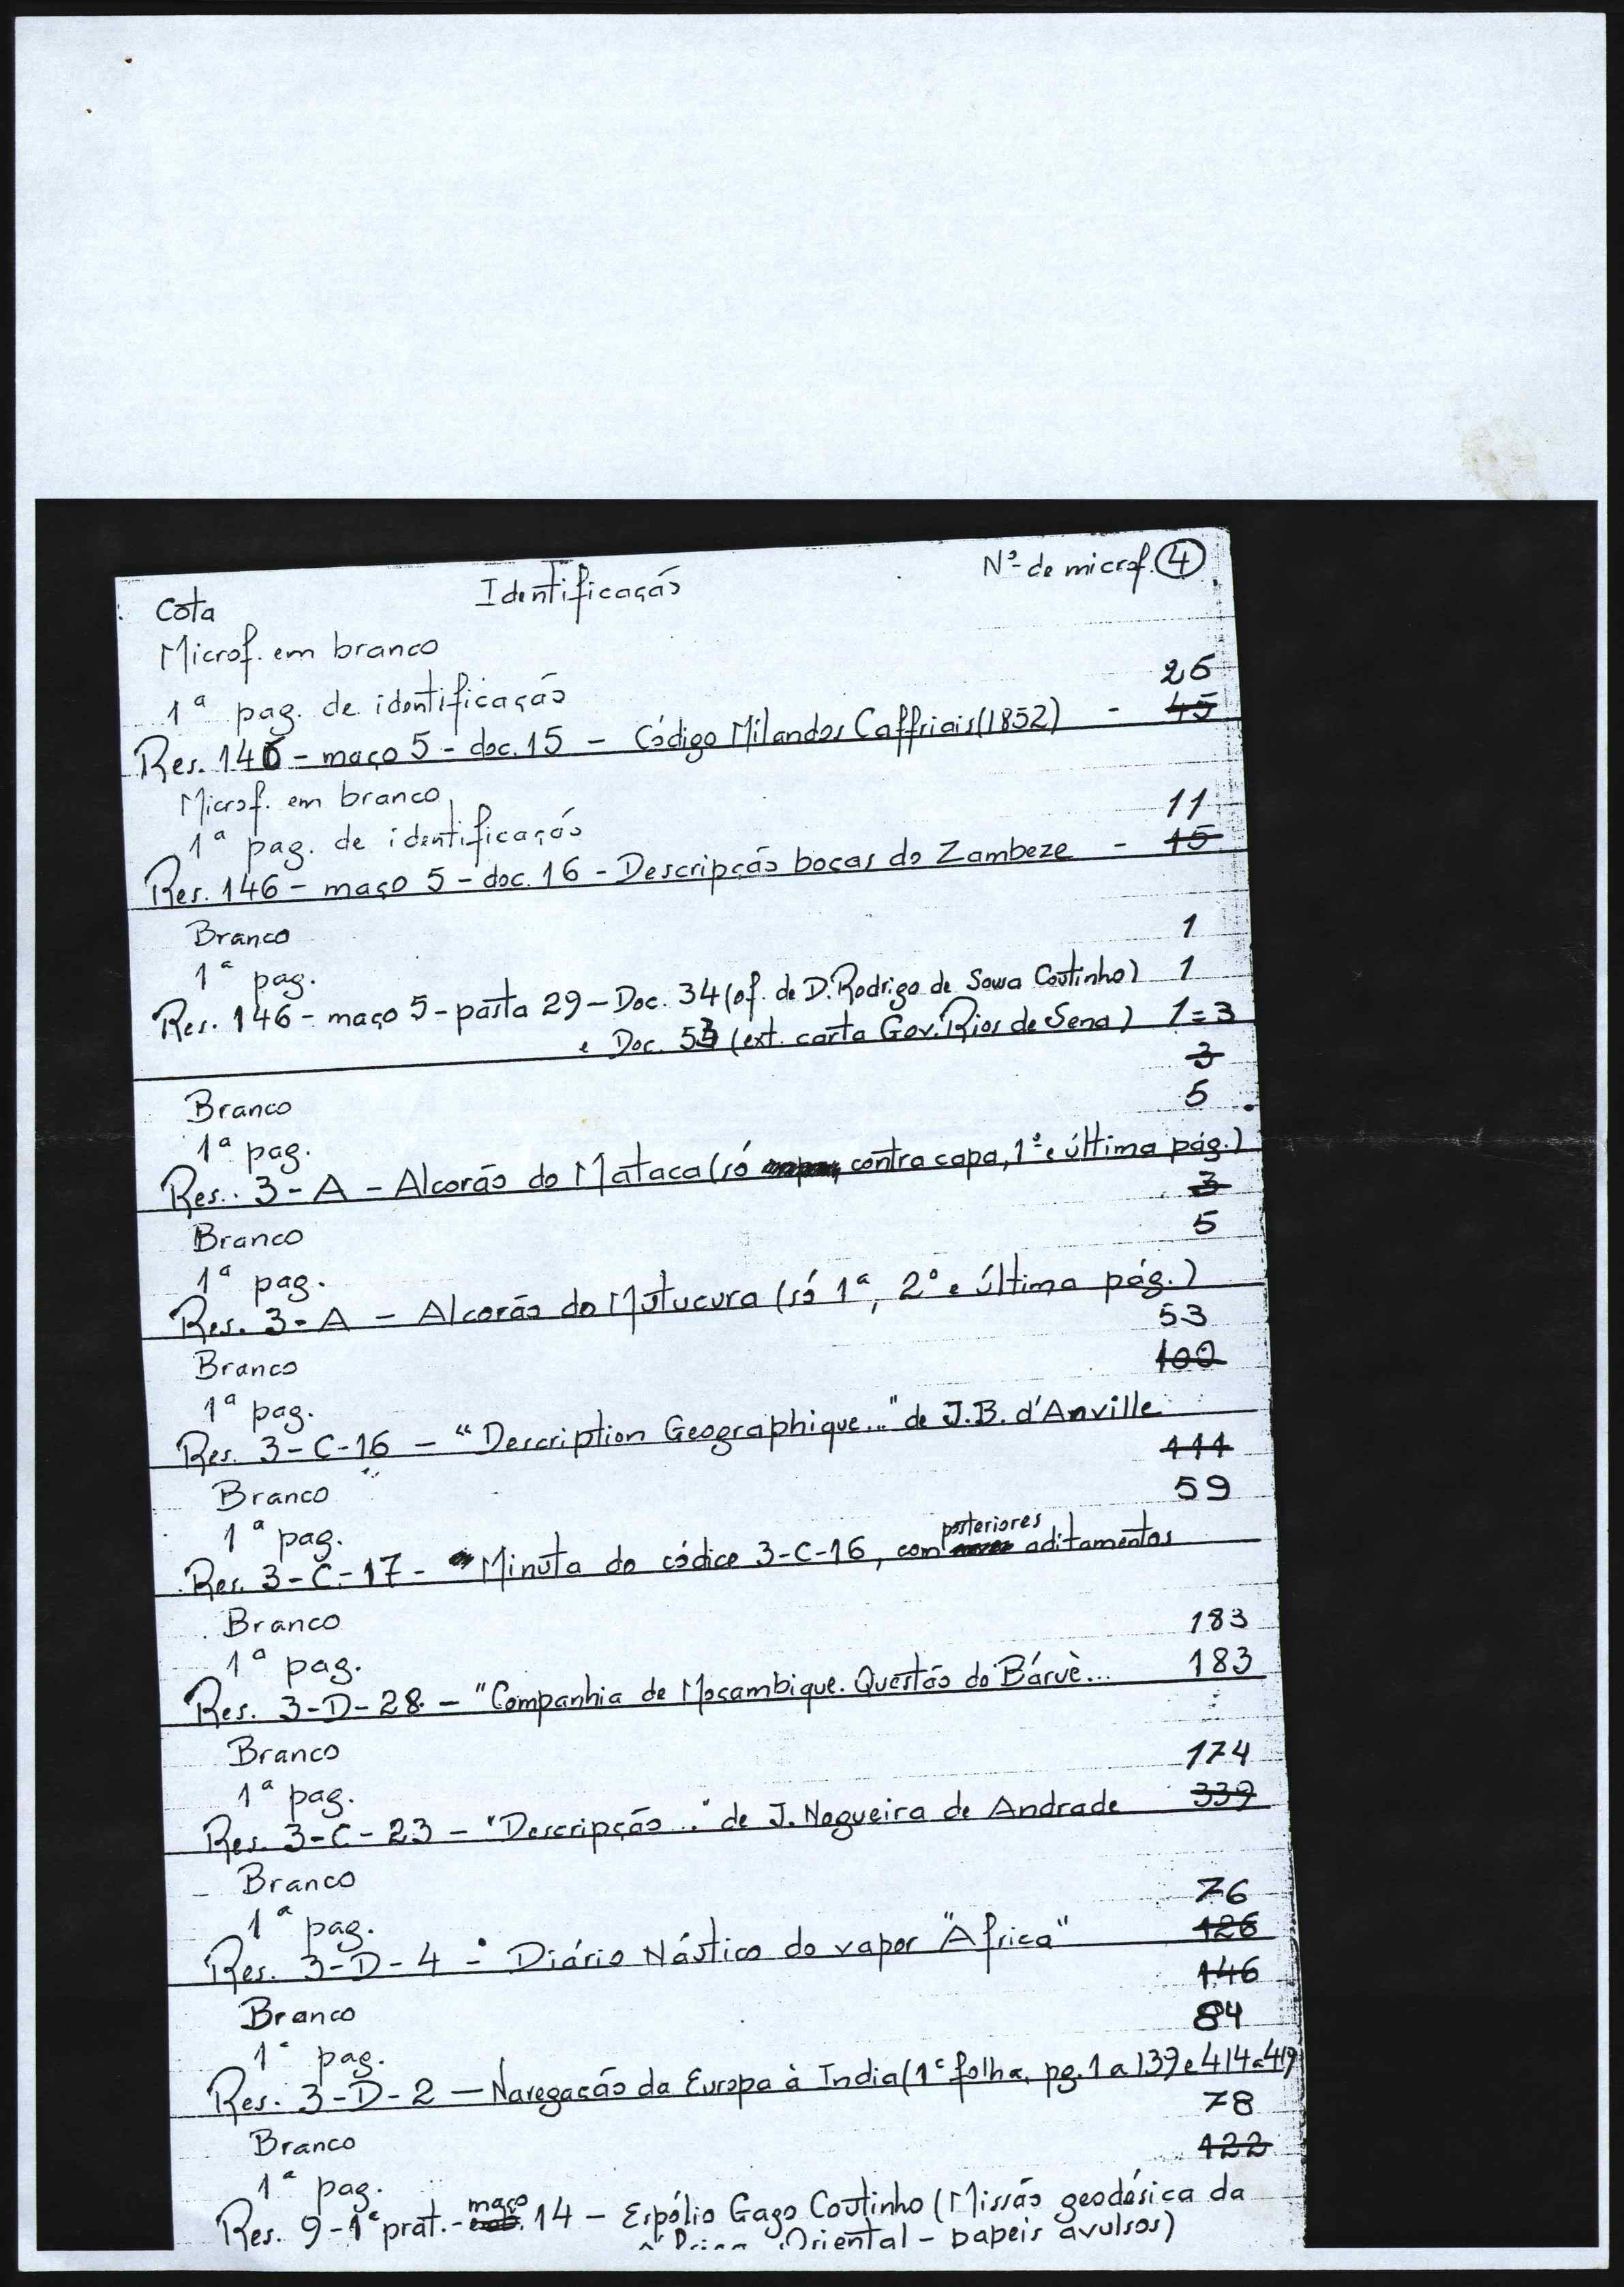 Cota Identificação Nº de microf. 4
Microf. em branco
26
1ª pag. de identificação
Res. 146 - maço 5 - doc. 15 - Código Milandos Caffriais (1852) - 45
Microf. em branco
11
1ª pag. de identificação
Res. 146 - maço 5 - doc. 16 - Descripção bocas do Zambeze - 15
Branco 1
1ª pag.
Res. 146 - maço 5 - pasta 29 - Doc. 34 (of. de D. Rodrigo de Sousa Coutinho) 1
e Doc. 53 (ext. carta Gov. Rios de Sena) 1 = 3
3
Branco 5
1ª pag.
Res. 3 - A - Alcorão do Mataca (só contra capa, 1ª e última pág.)
3
Branco 5
1ª pag.
Res. 3 - A - Alcorão do Mutucura (só 1ª, 2ª e última pág.)
53
Branco 100
1ª pag.
Res. 3 - C - 16 - "Description Geographique..." de J.B. d'Anville
111
Branco 59
1ª pag.
posteriores
Res. 3 - C - 17 - Minuta do códice 3-C-16, com aditamentos
Branco 183
1ª pag.
Res. 3 - D - 28 - "Companhia de Moçambique. Questão do Báruè... 183
Branco 174
1ª pag.
Res. 3 - C - 23 - "Descripção..." de J. Nogueira de Andrade 339
Branco 76
1ª pag.
Res. 3 - D - 4 - Diário Náutico do vapor "Africa" 126
146
Branco 84
1ª pag.
Res. 3 - D - 2 - Navegação da Europa à India (1ª folha, pg. 1 a 139 e 414 a 419)
78
Branco 122
1ª pag.
maço
Res. 9 - 1ª prat. - 14 - Espólio Gago Coutinho (Missão geodésica da
Oriental - papeis avulsos)